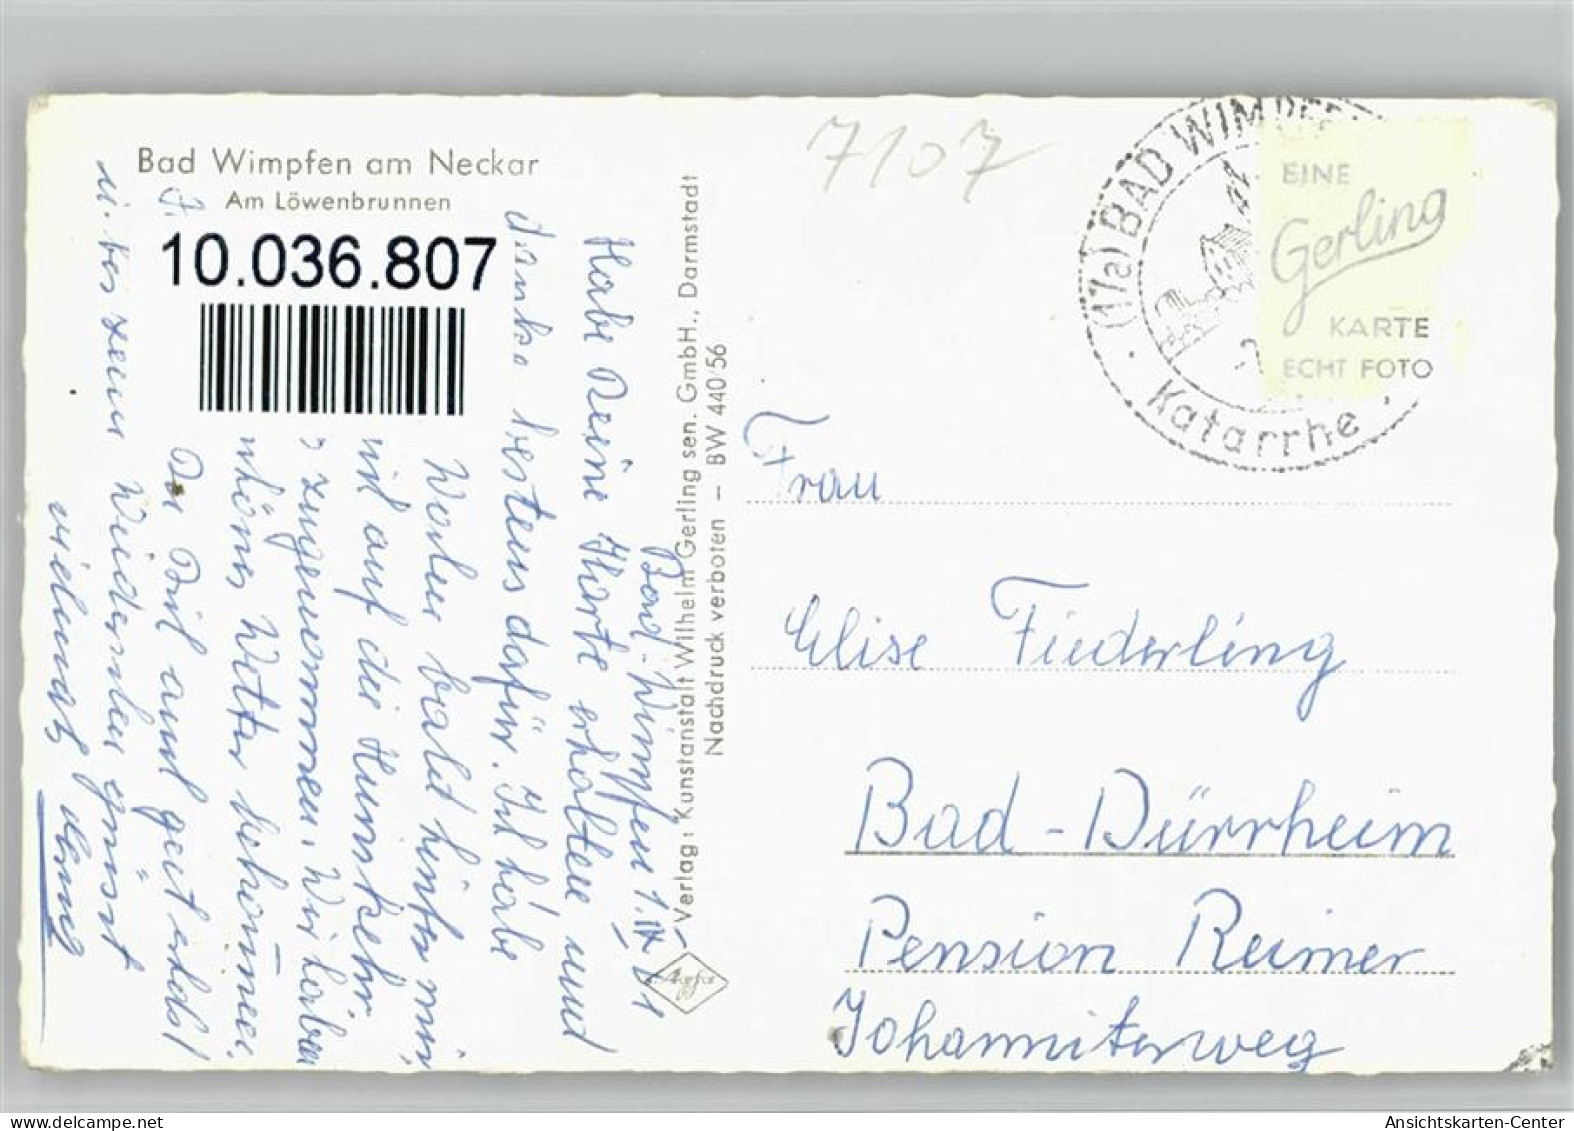 Bad Wimpfen am Neckar
Am Löwenbrunnen
10.036.807
Bad-Wimpfen 1. 61
Habe Deine Karte erhalten und
danke bestens dafür. Ich habe
Wochen bald hinter mir
und auf die
zugenommen. Wir haben
schönes Wetter bekommen.
u. bis zum Wiedersehen grüsst
vielmals
Verlag: Kunstanstalt Wilhelm Gerling sen. GmbH., Darmstadt
Nachdruck verboten – BW 440/56
Agfa
7107
(17a) BAD WIMPFEN
Katarrhe
EINE
Gerling
KARTE
ECHT FOTO
Frau
Elise Fiederling
Bad-Dürrheim
Pension Reimer
Johanniterweg
Ansichtskarten-Center